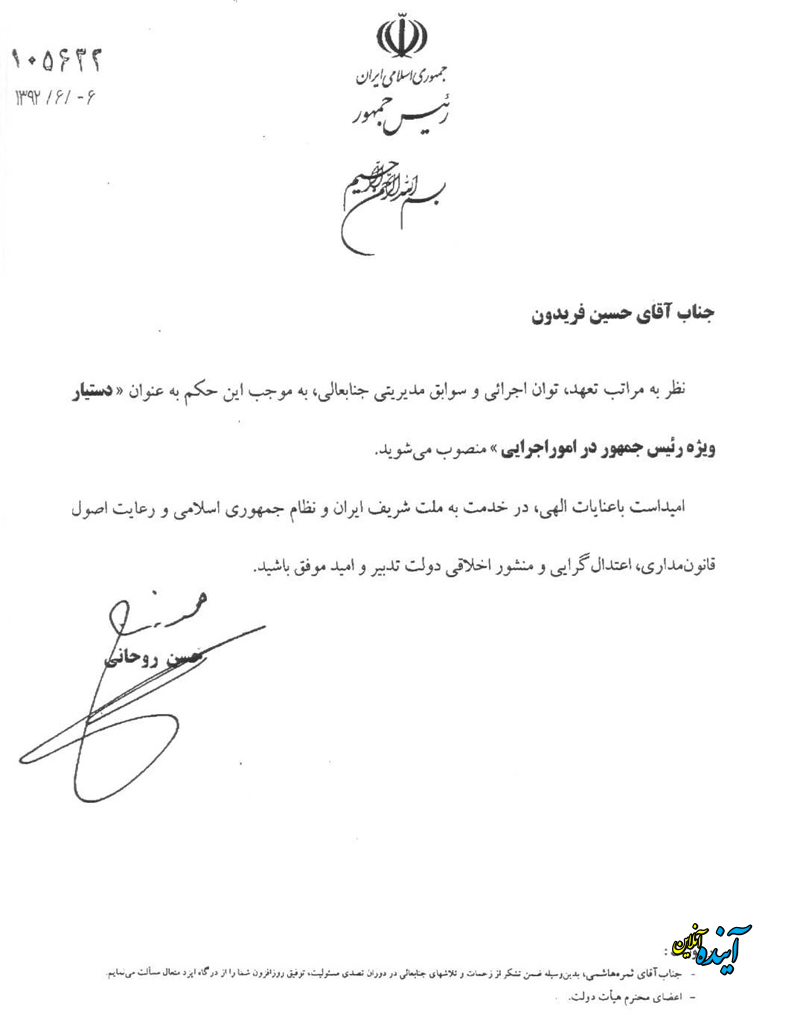 ۱۰۵۶۲۲
۱۳۹۲/۶/-۶
جمهوری اسلامی ایران
رئیس جمهور
بسم الله الرحمن الرحیم
جناب آقای حسین فریدون
نظر به مراتب تعهد، توان اجرائی و سوابق مدیریتی جنابعالی، به موجب این حکم به عنوان «دستیار
ویژه رئیس جمهور در اموراجرایی» منصوب می‌شوید.
امیداست باعنایات الهی، در خدمت به ملت شریف ایران و نظام جمهوری اسلامی و رعایت اصول
قانون‌مداری، اعتدال‌گرایی و منشور اخلاقی دولت تدبیر و امید موفق باشید.
حسن روحانی
آینده آنلاین
- جناب‌آقای ثمره‌هاشمی، بدین‌وسیله ضمن تشکر از زحمات و تلاشهای جنابعالی در دوران تصدی مسئولیت، توفیق روزافزون شما را از درگاه ایزد متعال مسألت می‌نمایم.
- اعضای محترم هیأت دولت.